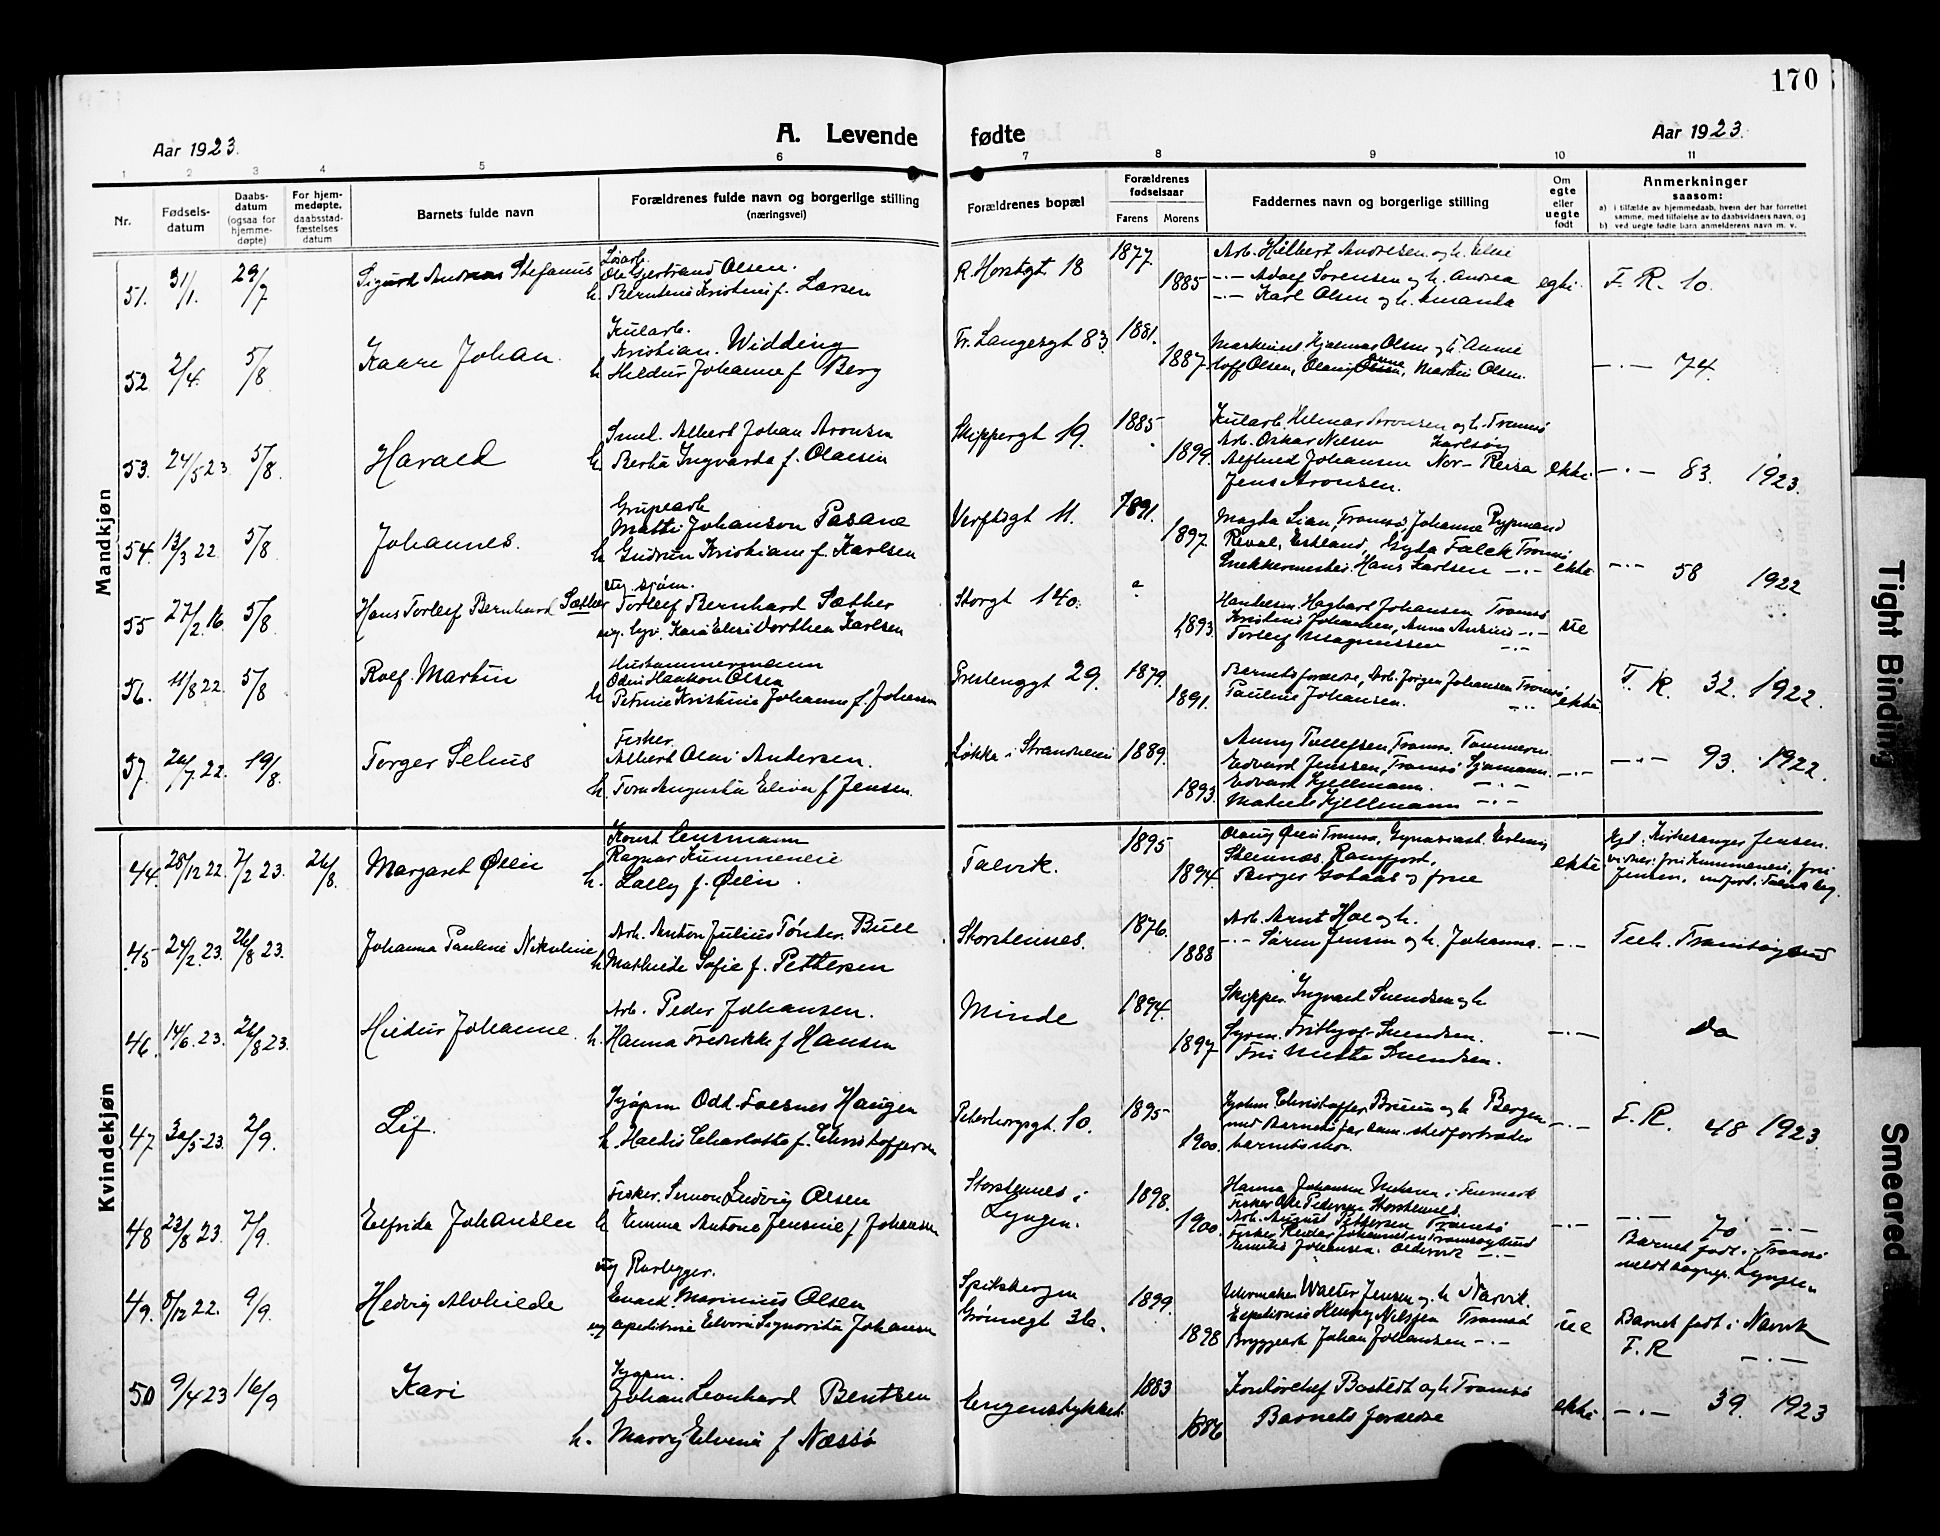 170
Aar 1923.
A. Levende fødte
Aar 1923.
1 2 3 4 5 6 7 8 9 10 11
Nr.
Fødsels-
datum
Daabs-
datum
(ogsaa for
hjemme-
døpte)
For hjem-
medøpte,
daabsstad-
fæstelses
datum
Barnets fulde navn
Forældrenes fulde navn og borgerlige stilling
(næringsvei)
Forældrenes bopæl
Forældrenes
fødselsaar
Farens Morens
Faddernes navn og borgerlige stilling
Om
egte
eller
uegte
født
Anmerkninger
saasom:
a) i tilfælde av hjemmedaab, hvem der har forrettet
samme, med tilføielse av to daabsvidners navn, og
b) ved uegte fødte barn anmelderens navn m. v.
Mandkjøn
51. 31/1. 29/7 Sigurd Andreas Stefanus
Løsarb.
Ole Gjertrand Olsen.
h. Berntine Kristine f. Larsen
R. Horstgt 18 1877. 1885
Arb. Hilbert Andresen og h. Elui
-·- Adolf Sørensen og h. Andrea
-·- Karl Olsen og h. Amanda
egte. F. R. 10.
52 2/4. 5/8 Kaare Johan.
Kularb.
Kristian. Widding
h Hildur Johanne f Berg
Fr. Langesgt 83. 1881. 1887.
Maskinist Hjalmar Olsen og h. Anne
Olsen, Martin Olsen.
-·- 74.
53. 24/5 23. 5/8. Harald
Smed. Albert Johan Aronsen
h Berta Ingvarda f. Olaisen
Skippergt 19. 1885 1899.
Kularb. Helmar Aronsen og h. Tromsø
Arb. Oskar Nilsen Karlsøy
Alfhild Johansen Nor-Reisa
Jens Aronsen.
ekte -·- 83. 1923.
54. 13/3 22. 5/8. Johannes.
Grubearb
Matti Johanson Pasane
h Gudrun Kristiane f. Karlsen
Verftsgt 11. 1891. 1897.
Magda Lian, Tromsø, Johanne
Gyda Falck Tromsø
Snekkermester Hans Karlsen -·-
ekte -·- 58 1922
55 27/2.16 5/8. Hans Torleif Bernhard Sæther
sjøm.
Torleif Bernhard Sæther
ug. Kaia Elise Dorthea Karlsen
Storgt 140. 1893.
Hagbart Johansen Tromsø
Kristine Johansen, Anna -·-
Torleif Magnussen -·-
ue
56. 11/8 22. 5/8 Rolf Martin
Hustømmermann
Odin Haakon Olsen
h Petrine Kristine Johanne f. Johansen
Grønneggt 29. 1879. 1891.
Barnets forældre, Arb. Jørgen Johansen Tromsø
Pauline Johansen. -·-
ekte. F. R. 32. 1922.
57. 26/7.22. 19/8. Torger Selius
Fisker
Albert Olai Andersen.
h. Tora Augusta f Jensen.
Løkka i Strandveien 1889. 1893.
Anny Tollefsen Tromsø.
Edvard Jenssen, Tromsø Sjømann.
Edvard Kjellmann. -·-
Kjellmann -·-
-·- -·- 93. 1922.
Kvindekjøn
44. 28/12 22. 7/2 23. 26/8. Margaret Øien
Konst Lensmann
Ragnar Kummeneie
h. Lally f. Øien.
Talvik. 1895 1894.
Olaug Øien Tromsø, Gymnasiast Erling
Stennæs, Ramfjord,
Birger Gotaas og frue
ekte Hjd. Kirkesanger Jensen.
vidner: fru Kummeneie, fru
Jensen,
45 24/2.23. 26/8 23. Johanna Pauline Nikoline
Arb. Anton Julius Tønder Bull
h Mathilde Sofie f. Pettersen
Storstennes. 1876. 1888
Arb. Arnt Hol og h.
-·- Søren Jensen og h. Johanna.
-·- Tilh. Tromsøysund
46. 14/6.23. 26/8 23. Hildur Johanne.
Arb. Peder Johansen.
h. Hanna Fredrikke f Hansen
Minde 1894. 1897
Skipper. Ingvald Svendsen og h
Sjøm. Fritjof Svendsen.
Fru Mette Svendsen.
-·- do
47 30/5-23. 2/9. Lif.
Kjøpm Odd Foesnes Haugen
h. Haldis Charlotte f. Christoffersen
Peterborgsgt. 10. 1895 1900.
Kjøpm. Christoffer Bruun og h Bergen
med Barnets far som stedfortræder
barnets mor.
-·- F. R. 48 1923.
48 22/8 23. 7/9. Elfrida Johanslin
Fisker. Simon Ludvig Olsen
h Emma Antone Jensine f Johansen
Storstennes i
Lyngen. 1898. 1900.
Hanna Johansen Mehavn i Finmark
Fisker Ole Pedersen Storstennes.
Arb. August Pettersen Tromsø
Fisker Peder Johannesen Tromsøysund
Johansen. Oldervik -·-
-·- -·- 70. -·-
Barnet født i Tromsø
meldt sognepr. Lyngen
49. 8/12 22. 9/9. Hedvig Alvhilde
ug Rørlegger.
Ewald. Marinius Olsen
ug Elvira Signorita Johansen
Spitsbergen
Grønnegt 36. 1899. 1898
Urmaker Walter Jensen og h Narvik.
Henny Nilssen Tromsø
Bryggearb Johan Johansen -·-
ue Barnet født i Narvik
F. R -·-
50 9/4 23 16/9 Kari
Kjøpm.
Johan Leonhard Bentsen
h. Marry Elvine f Næssø
Engenstykket. 1883 1886
Kontorchef Bostedt og h Tromsø
Barnets forældre
ekte. -·- 39. 1923
Tight Binding
Smeared